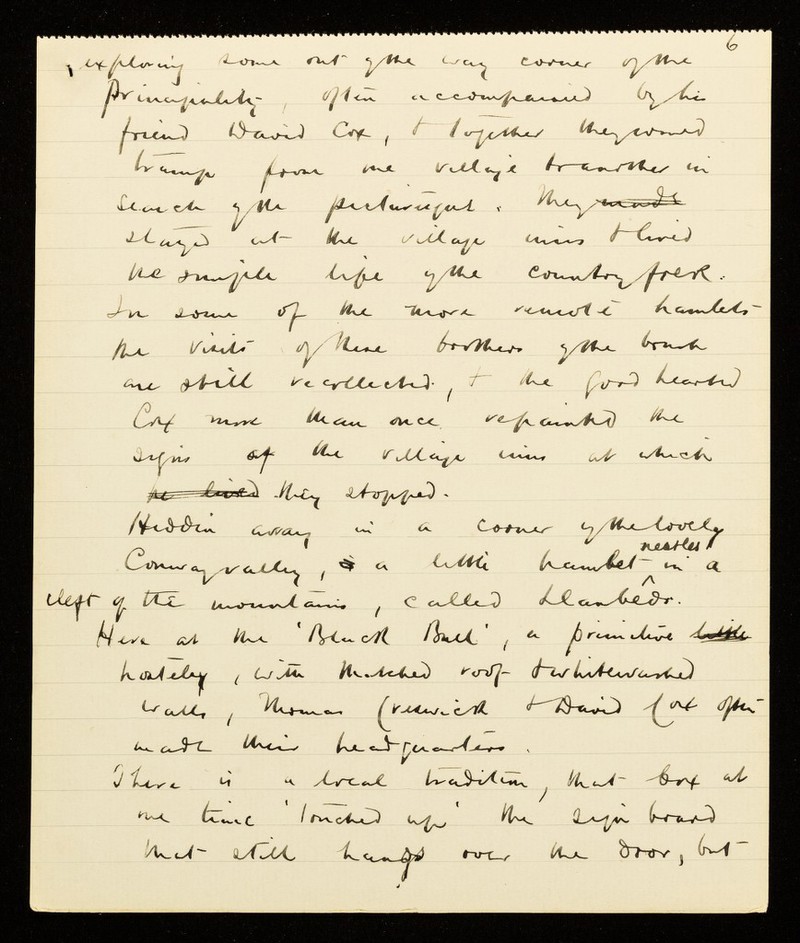 6
, exploring some out of the way corner of the
Principality, often accompanied by his
friend David Cox, & together they would
tramp from one village to another in
search of the picturesque. They made
stayed at the village inns & lived
the simple life of the country folk.
In some of the more remote hamlets
the visits of these brothers of the brush
are still recollected, & the good hearted
Cox more than once repainted the
signs of the village inns at which
he lived they stopped.
Hidden away in a corner of the lovely
nestles
Conway valley, is a little hamlet in a
cleft of the mountains, called Llanbedr.
Here at the 'Black Bull', a primitive little
hostelry, with thatched roof & whitewashed
walls, Thomas Creswick & David Cox often
made their headquarters.
There is a local tradition, that Cox at
one time 'touched up' the sign board
that still hangs over the door, but